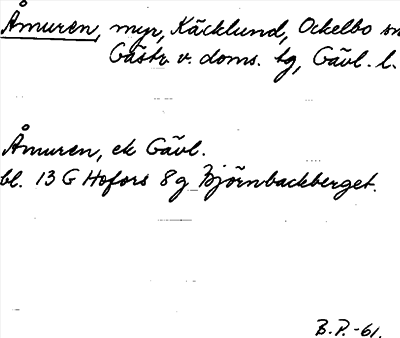 Åmuren, myr, Käcklund, Ockelbo sn
Gästr. v. doms. tg, Gävl. l.
Åmuren, ek Gävl.
bl. 13 G Hofors 8 g Björnbackberget.
B.P.-61.